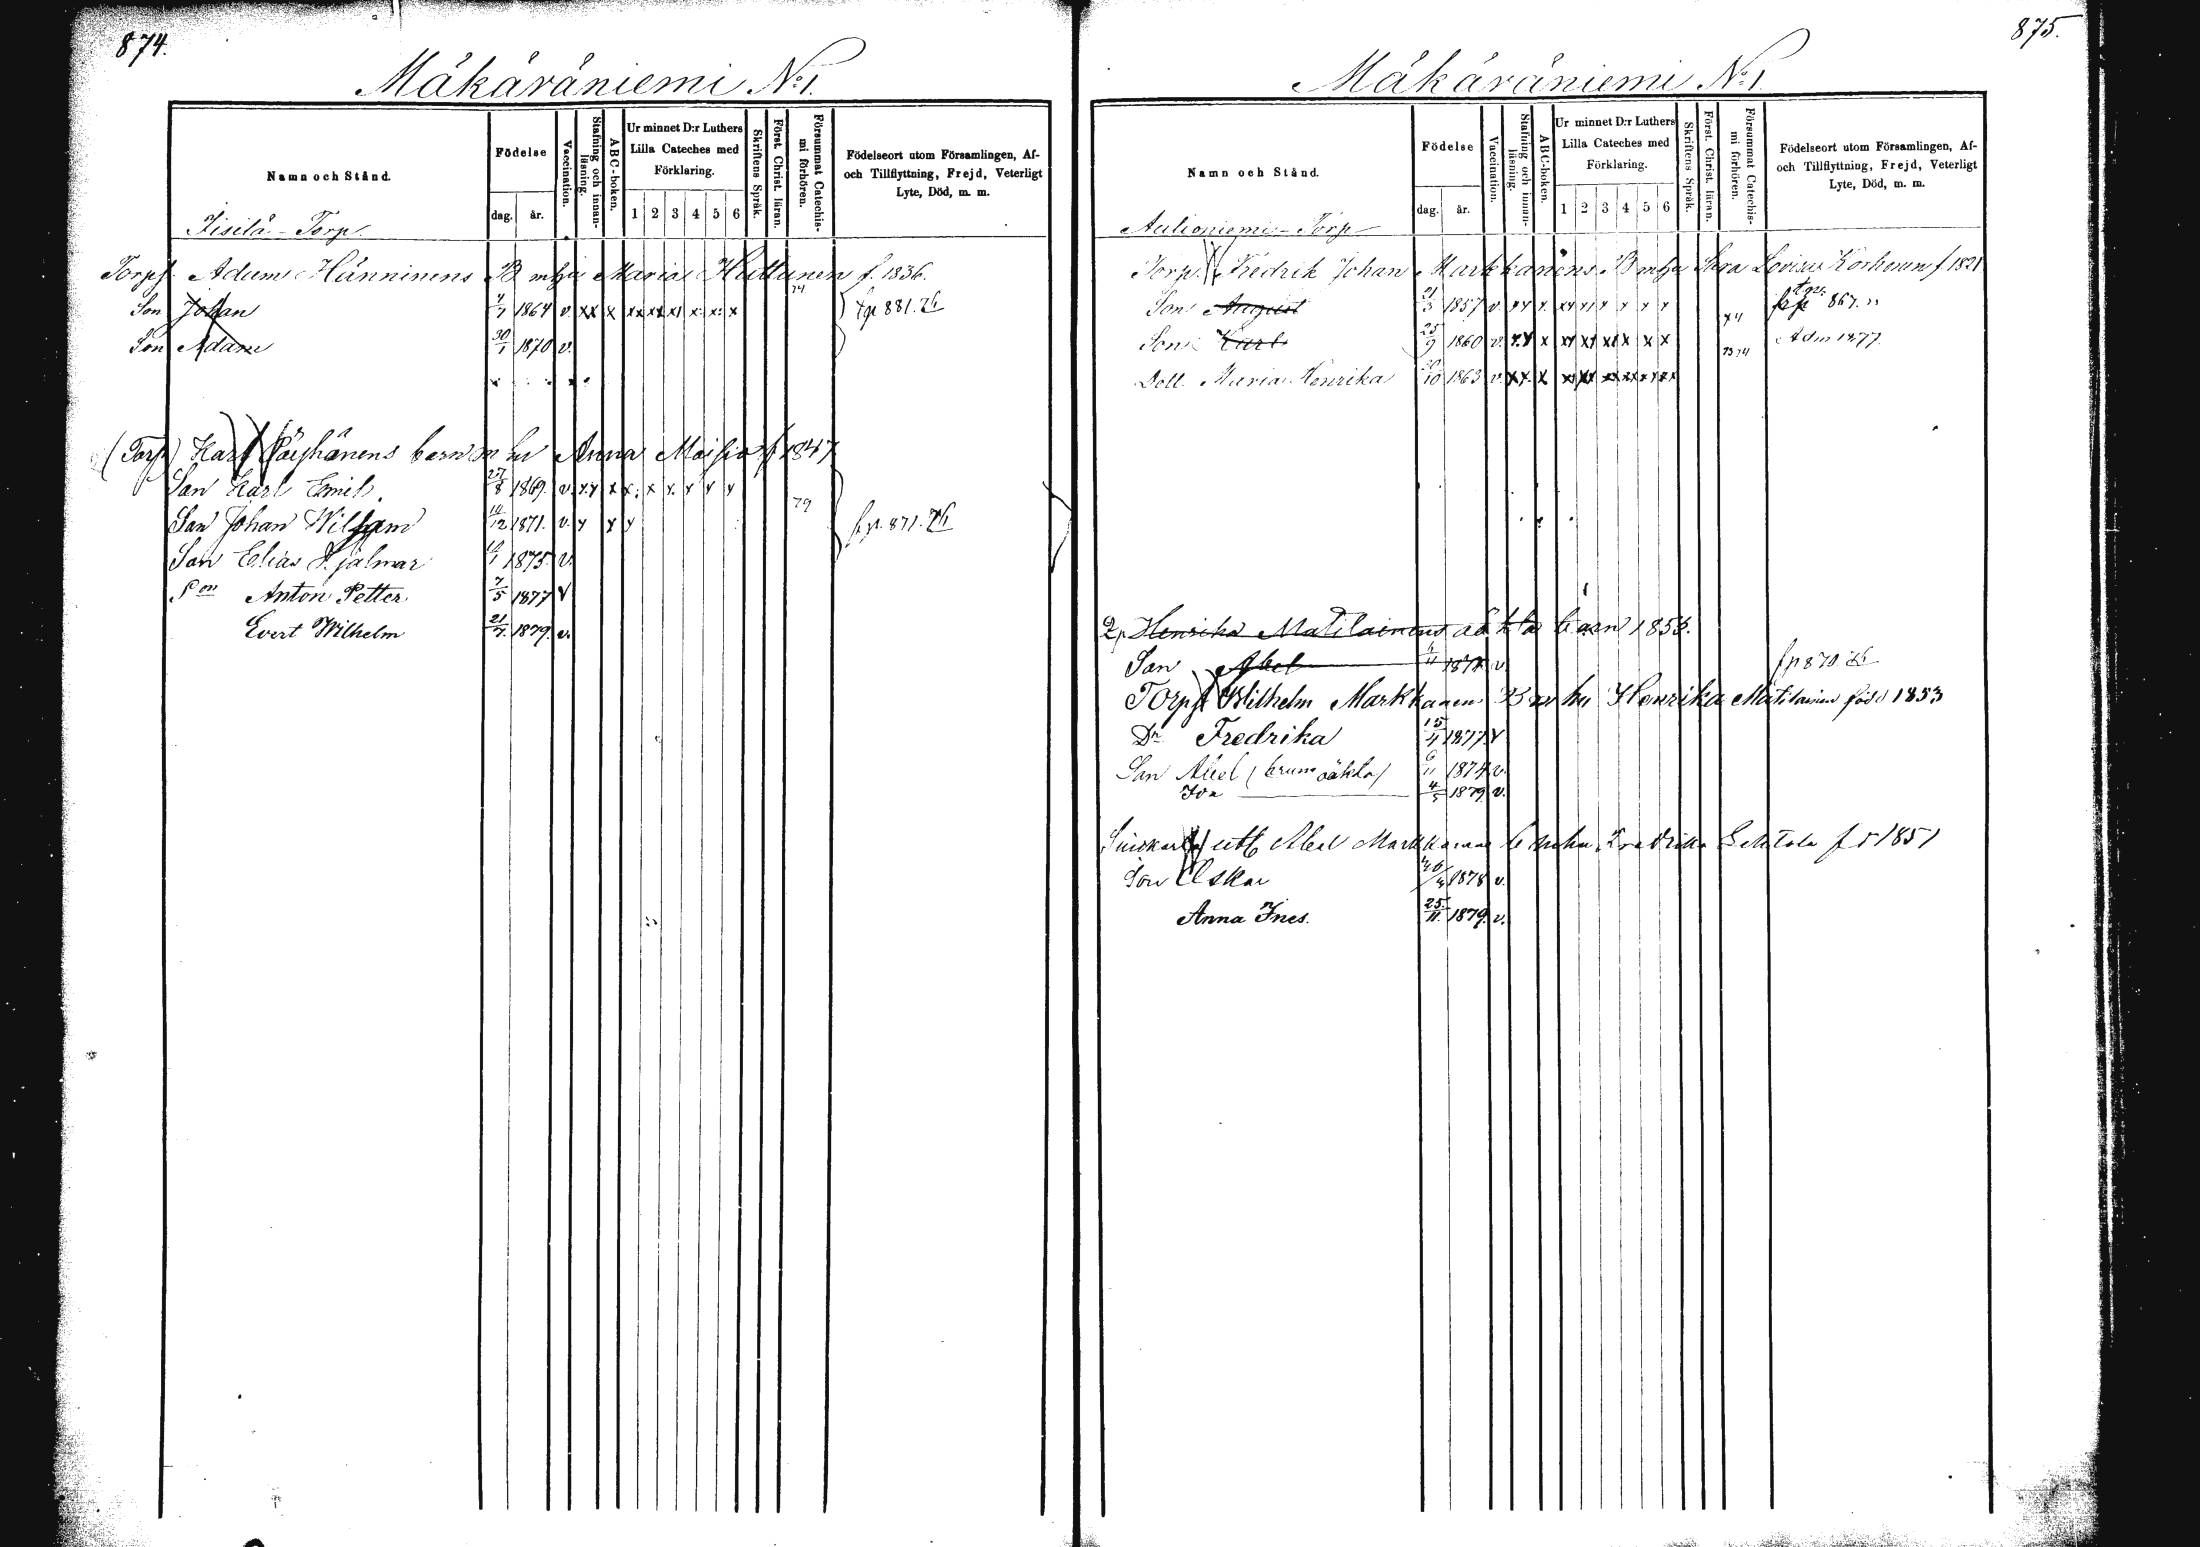 874.
Mäkäräniemi No 1.
Namn och Stånd.
Födelse
dag.
år.
Vaccination.
Stafning och innanläsning.
ABC-boken.
Ur minnet D:r Luthers
Lilla Cateches med
Förklaring.
1 2 3 4 5 6
Skriftens Språk.
Först. Christ. läran.
Försummat Catechismi förhören.
Födelseort utom Församlingen, Af-
och Tillflyttning, Frejd, Veterligt
Lyte, Död, m. m.
Iisilä - Torp.
Torp. Adam Hänninens B mhu Maria Huttunen f. 1836.
Son Johan 4/7 1864 v. xx x xx xx x x x x 74 fp 881. 76
Son Adam 30/1 1870 v.
(Torp) Karl barn m hu Anna f 1847
Son Karl Emil 27/8 1869. v. x x x x x x x x x 79
Son Johan Wilhelm 14/12 1871. v. x x x fp. 871. 76
Son Elias Hjalmar 1875. v.
Son Anton Petter 7/5 1877 v
Evert Wilhelm 21/7. 1879. v.
875.
Mäkäräniemi No 1.
Namn och Stånd.
Födelse
dag.
år.
Vaccination.
Stafning och innanläsning.
ABC-boken.
Ur minnet D:r Luthers
Lilla Cateches med
Förklaring.
1 2 3 4 5 6
Skriftens Språk.
Först. Christ. läran.
Försummat Catechismi förhören.
Födelseort utom Församlingen, Af-
och Tillflyttning, Frejd, Veterligt
Lyte, Död, m. m.
Aulioniemi - Torp
Torp. Fredrik Johan Markkanens B mhu Sara Lovisa Korhonen f 1821
Son August 21/3 1857 v. x x x x x x x x x 74 867.
Son Karl 25/9 1860 v. x x x x x x x x x 73 74 Adm 1877.
Dott. Maria Henrika 20/10 1863 v. xx x xx xx xx xx xx xx
Henrika Matilainens oäkta barn 1853.
Son Abel 6/11 1874 v. fp 870. 76
Torp Wilhelm Markkanen B m hu Henrika Matilainen född 1853
Dr Fredrika 15/4 1877 v
Son Abel (hruns oäkta) 6/11 1874 v.
Ida 4/5 1879 v.
Abel Markkanens b m hu Fredrika f 1851
Son Oskar 1878 v.
Anna Ines. 25/11. 1879. v.